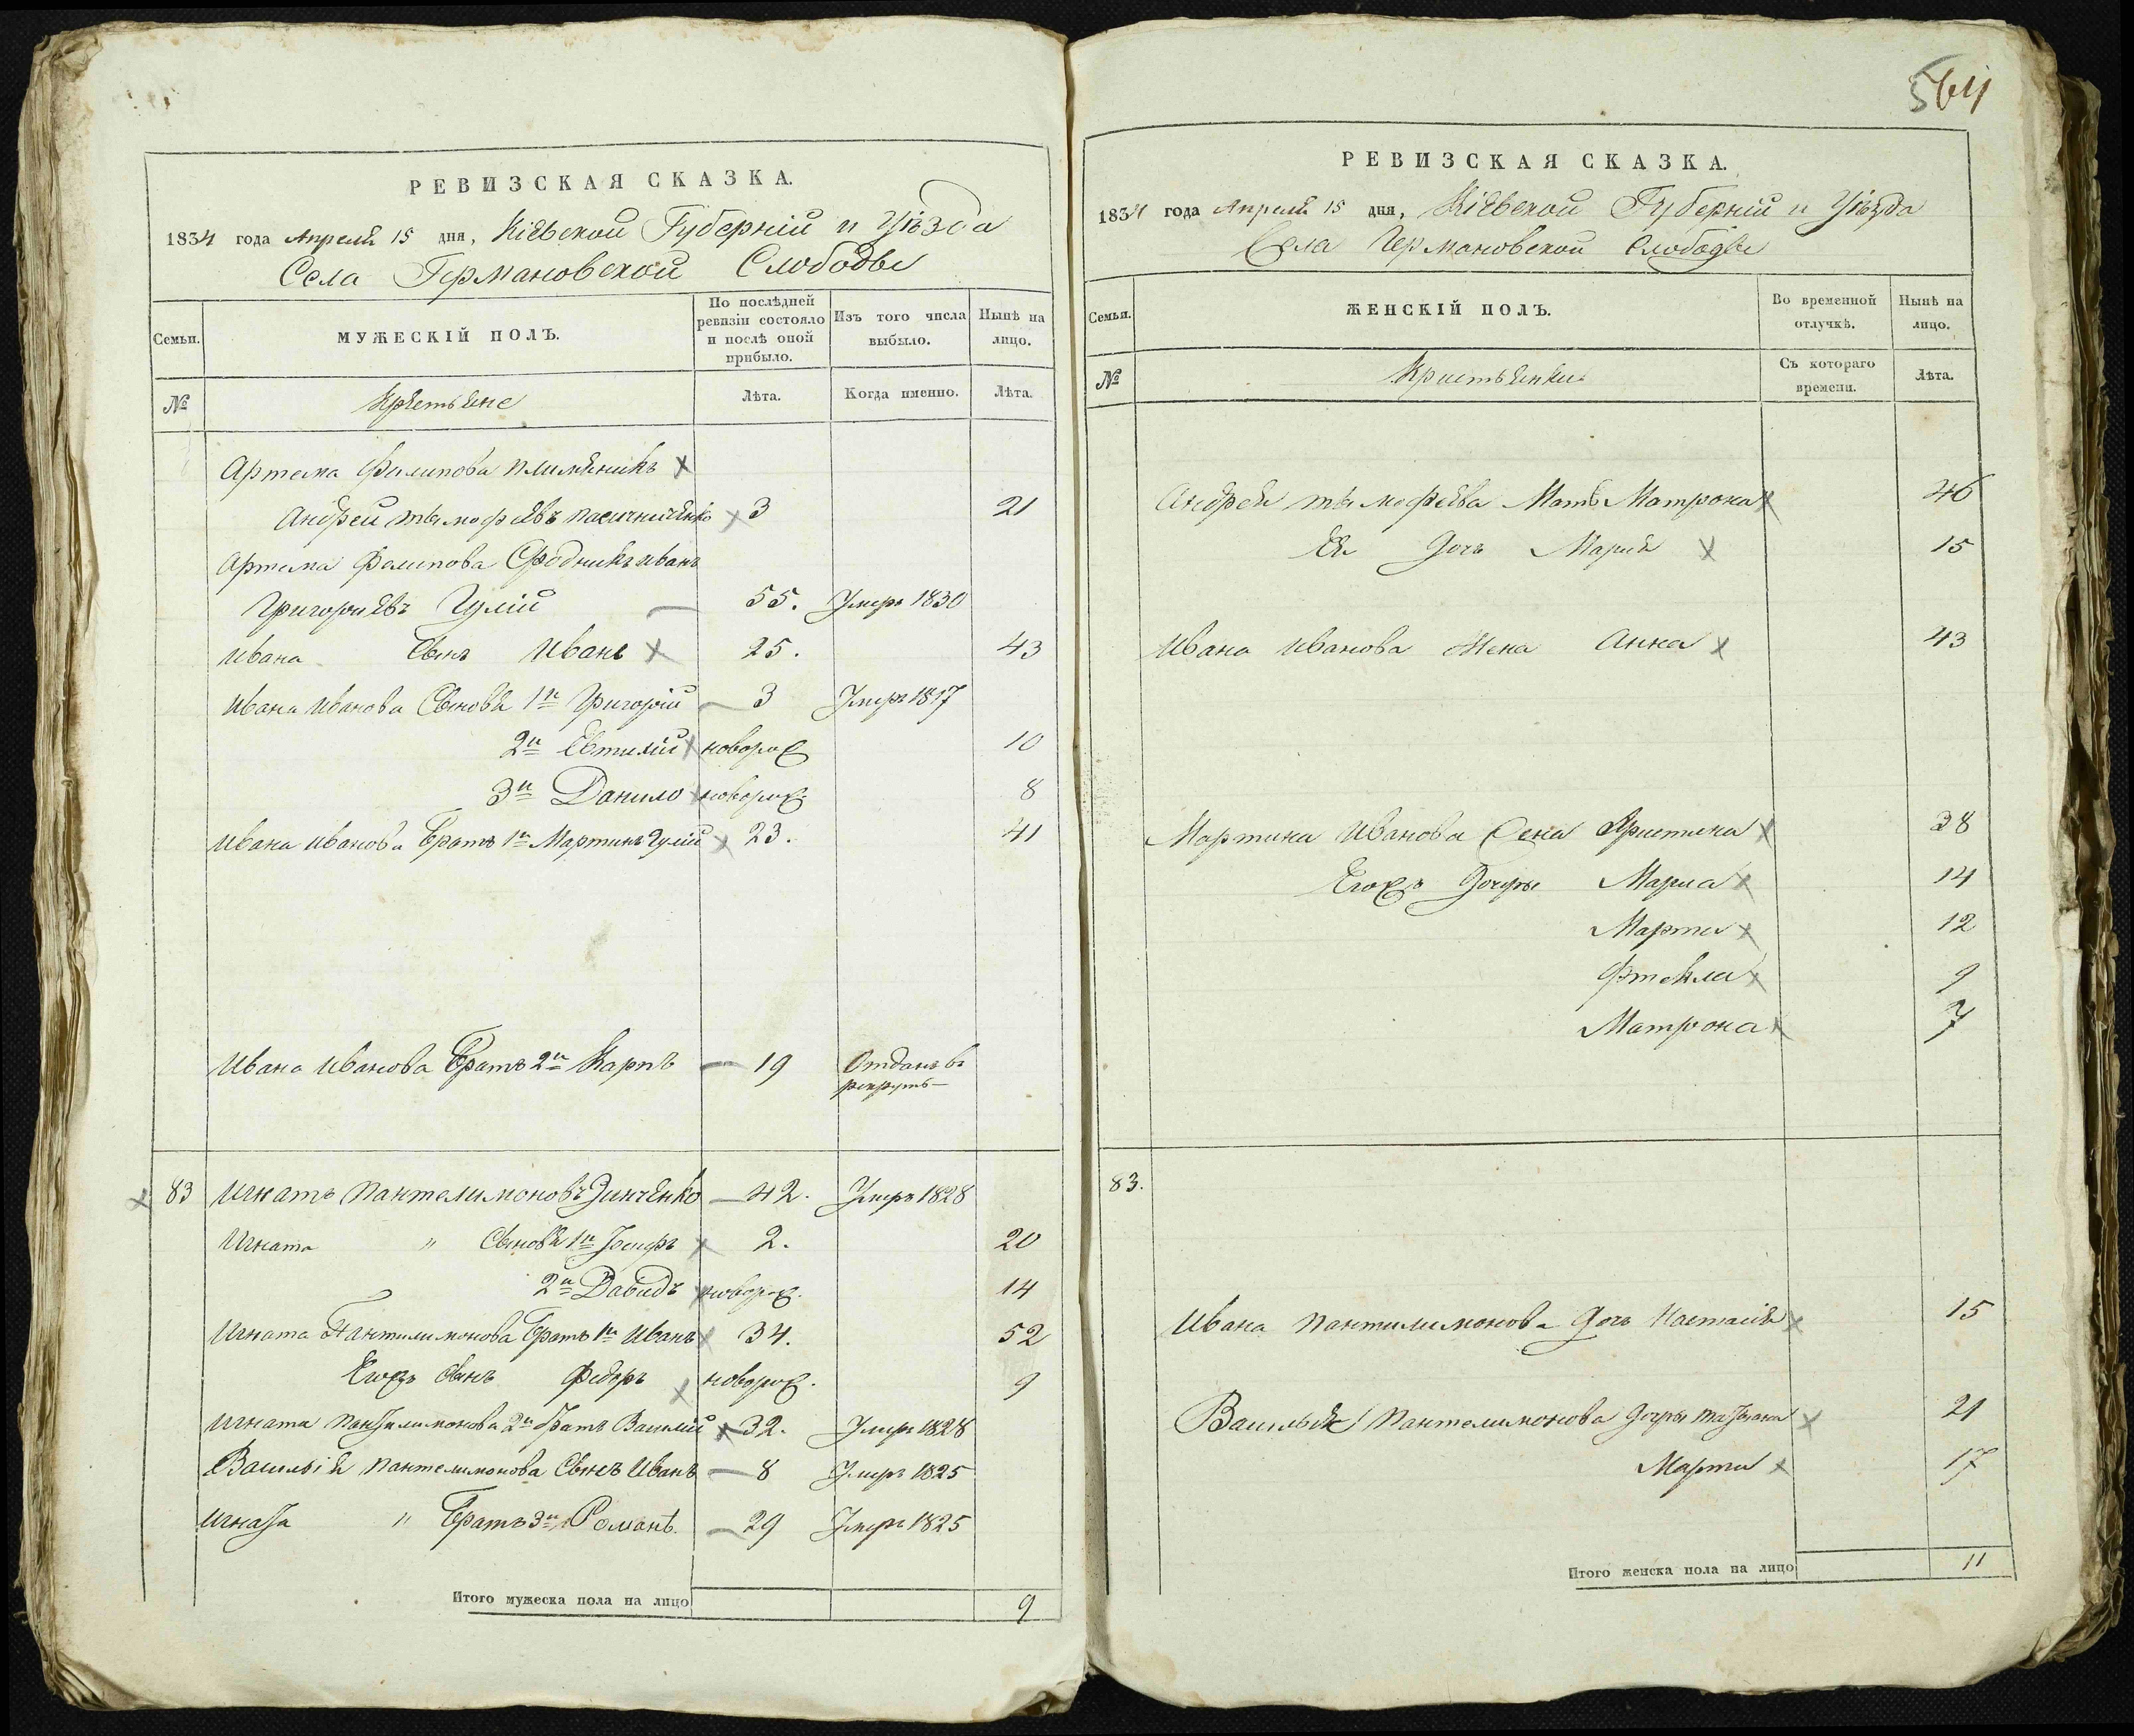 564
РЕВИЗСКАЯ СКАЗКА.
1834 года Апреля 15 дня, Кіевской Губерніи и Уѣзда
Села Германовской Слободы
Семьи.
МУЖЕСКІЙ ПОЛЪ.
По послѣдней ревизіи состояло и послѣ оной прибыло.
Изъ того числа выбыло.
Нынѣ на лицо.
№
Крестьяне
Лѣта.
Когда именно.
Лѣта.
Артема Филипова племяникъ
Андрей тимофѣевъ пасичниченко 3 21
Артема Филипова Сродникъ иванъ
Григориевъ Гулій 55. Умеръ 1830
Ивана Сынъ Иванъ 25. 43
Ивана Иванова Сыновя 1й Григорій 3 Умеръ 1817
2й Евтихій новорож 10
3й Данило новорож. 8
Ивана Иванова Братъ 1й Мартинъ Гулій 23. 41
Ивана Иванова Братъ 2й Карпъ 19 Отданъ въ
рекруты
83 Игнатъ Пантелимоновъ Зинченко 42. Умеръ 1828
Игната " Сыновя 1й 2. 20
2й Давидъ новорож. 14
Игната Пантилимонова Братъ 1й Иванъ 34. 52
Егожъ сынъ Федоръ новорож. 9
Игната Пантилимонова 2й братъ Василій 32. Умеръ 1828
Василія Пантелимонова Сынъ Иванъ 8 Умеръ 1825
Игната " Братъ 3й Романъ. 29 Умеръ 1825
Итого мужеска пола на лицо 9
РЕВИЗСКАЯ СКАЗКА.
1834 года Апреля 15 дня, Кіевской Губерніи и Уѣзда
Села Германовской Слободы
Семьи.
ЖЕНСКІЙ ПОЛЪ.
Во временной отлучкѣ.
Нынѣ на лицо.
№
Кристьянки
Съ котораго времени.
Лѣта.
Андрея тимофеева Мать Матрона 46
Ея Дочъ Мария 15
Ивана Иванова Жена Анна 43
Мартина Иванова Жена Христина 38
Егожъ Дочеры Мариа 14
Марта 12
9
Матрона 7
83.
Ивана Пантилимонова Дочъ Настасия 15
Василия Пантелимонова Дочры татиана 21
Марта 17
Итого женска пола на лицо 11